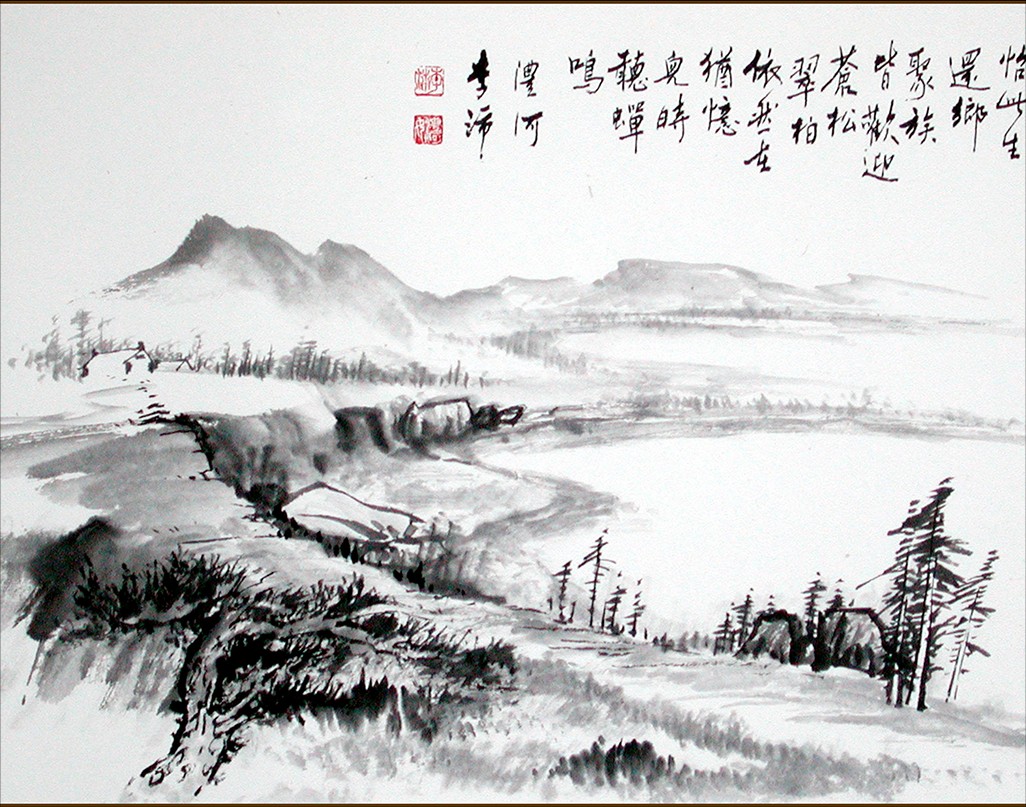 怡此生
還鄉
聚族
皆歡迎
蒼松
翠柏
依然在
猶憶
兒時
聽蟬
鳴
澧河
李沛